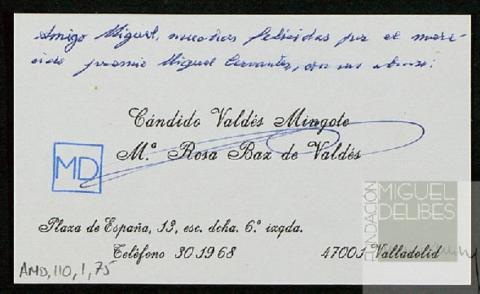 Amigo Miguel, muchas felicidades por el mere-
cido premio Miguel Cervantes, con un abrazo:
Cándido Valdés Mingote
M.ª Rosa Baz de Valdés
MD
Plaza de España, 13, esc. dcha. 6.º izqda.
Teléfono 30 19 68
47001 Valladolid
AMD, 110, 1, 75
FUNDACIÓN
MIGUEL
DELIBES